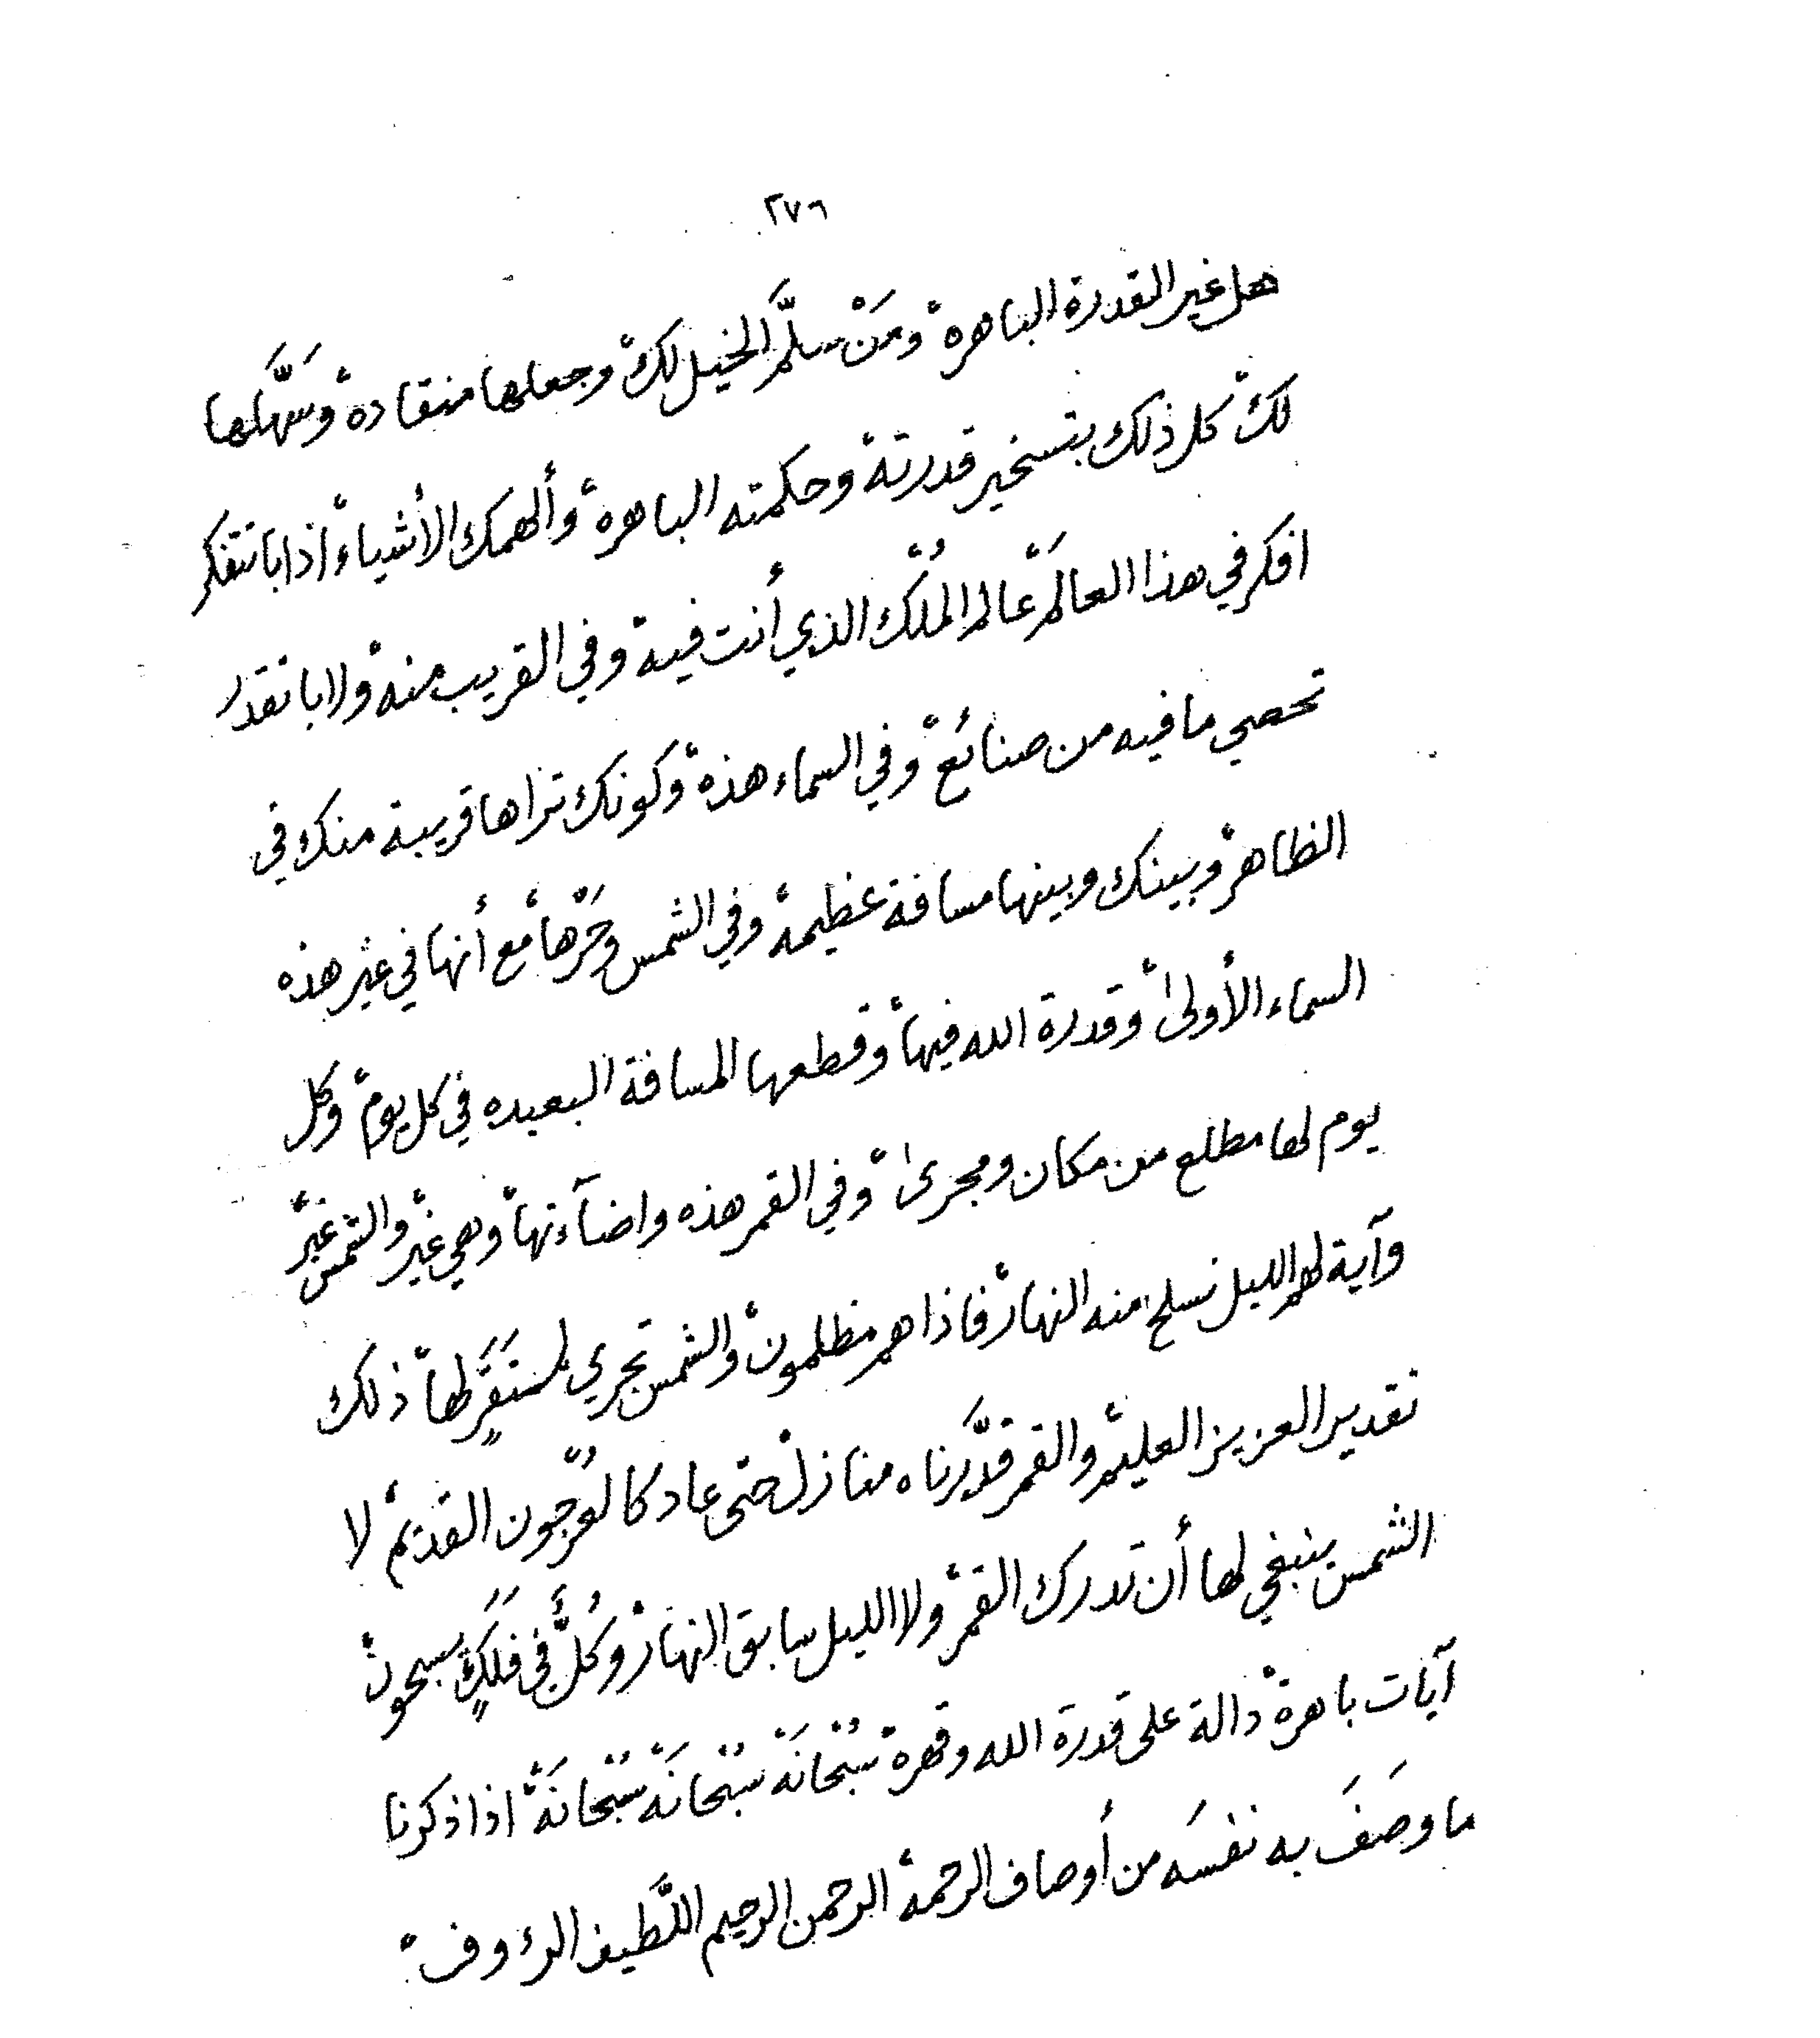 ٢٧٦
هل غير القدرة الباهره ومَنْ سلَّم الخيل لك وجعلها منقاده وسَهَّلها
لك كل ذلك بتسخير قدرته وحكمته الباهره وألهمك الأشياء اذا با تتفكر
افكر في هذا العالَم عالم المُلْك الذي أنت فيه وفي القريب منه ولا با تقدر
تحصي ما فيه من صنائع وفي السماء هذه وكونك تراها قريبة منك في
الظاهر وبينك وبينها مسافة عظيمة وفي الشمس وحَرّها مع أنها في غير هذه
السماء الأولىٰ وقدرة الله فيها وقطعها المسافة البعيده في كل يوم وكل
يوم لها مطلع من مكان ومجرىٰ وفي القمر هذه واضآءتها وهي غير والشمس غير
وآية لهم الليل نسلخ منه النهار فاذا هم مظلمون والشمس تجري لمستَقَرٍّ لها ذلك
تقدير العزيز العليم والقمر قدَّرناه منازل حتى عاد كالعُرجُون القديم لا
الشمس ينبغي لها أن تدرك القمر ولا الليل سابق النهار وكُلٌّ في فلَكٍ يسبحون
آيات باهرة دالة على قدرة الله وقهره سُبْحَانَه سُبْحَانَه سُبْحَانَه اذا ذكرنا
ما وصَفَ به نفسَه من أوصاف الرحمة الرحمن الرحيم اللَّطيف الرءوف